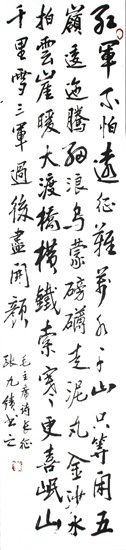 紅軍不怕遠征難萬水千山只等閒五
嶺逶迤騰細浪烏蒙磅礴走泥丸金沙水
拍雲崖暖大渡橋橫鐵索寒更喜岷山
千里雪三軍過後盡開顏
毛主席詩長征
張九書之